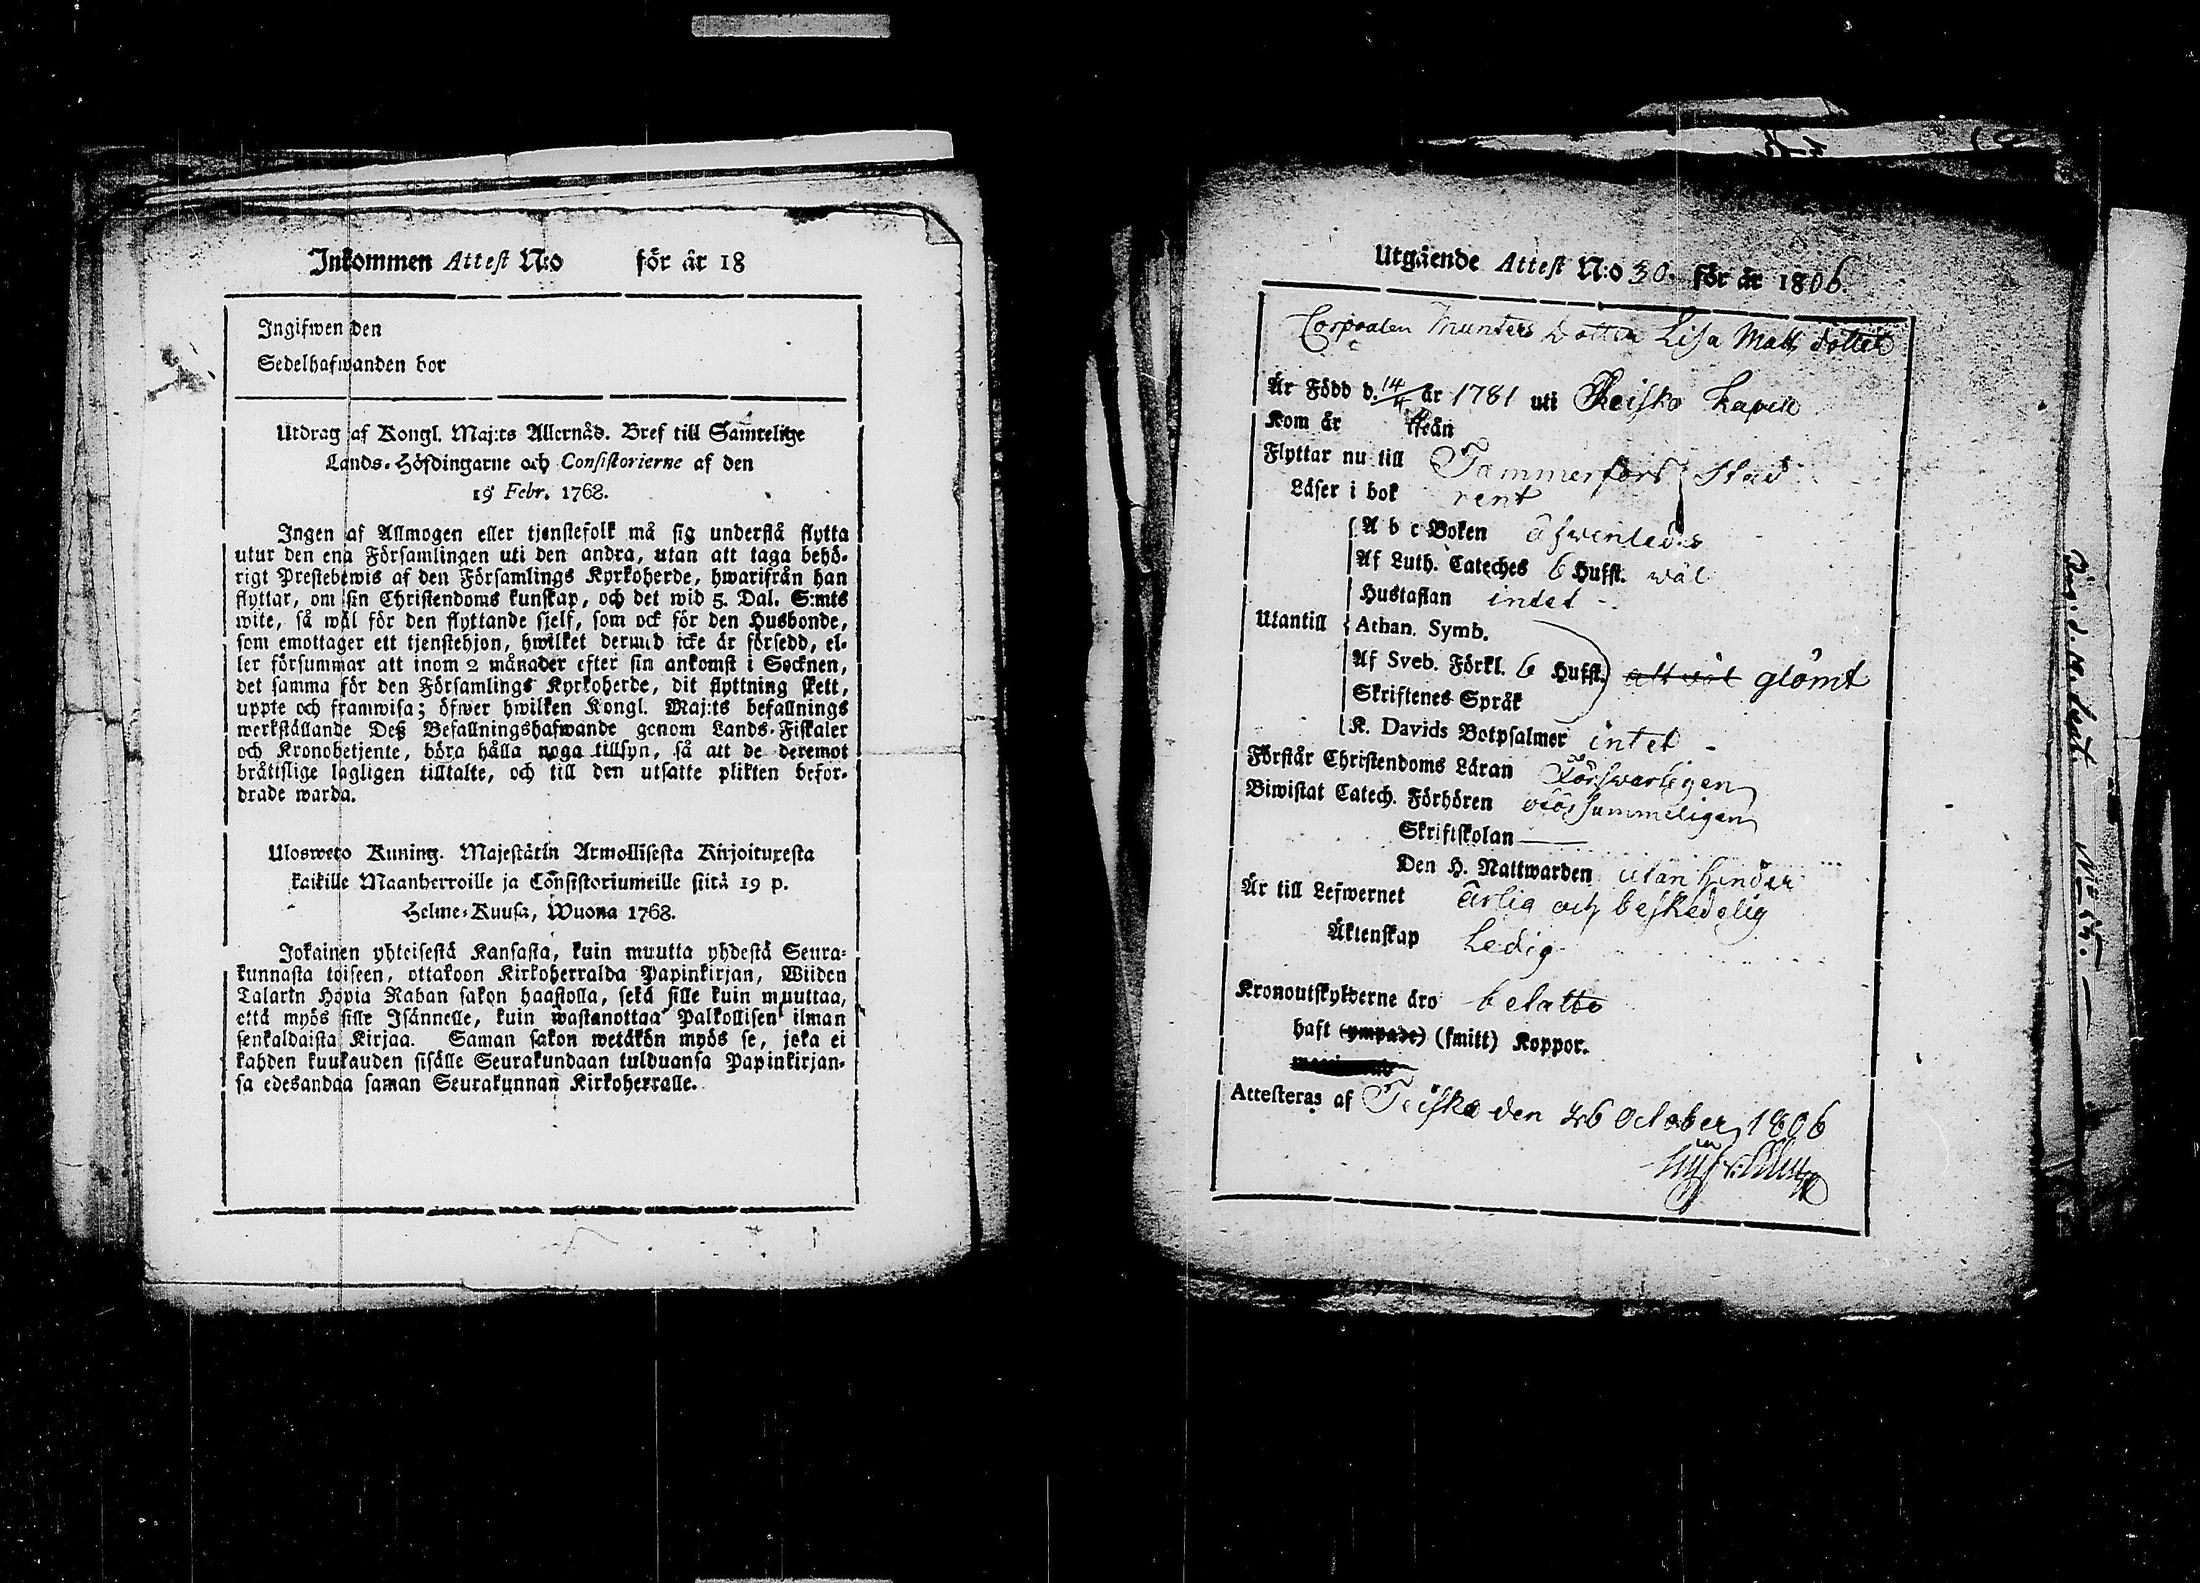 Inkommen Attest N:o för år 18
Ingifwen den
Sedelhafwanden bor
Utdrag af Kongl. Maj:ts Allernåd. Bref till Samtelige
Lands-Höfdingarne och Consistorierne af den
19 Febr. 1768.
Ingen af Allmogen eller tjenstefolk må sig understå flytta
utur den ena Församlingen uti den andra, utan att taga behö-
rigt Prestebewis af den Församlings Kyrkoherde, hwarifrån han
flyttar, om sin Christendoms kunskap, och det wid 5. Dal. S:mts
wite, så wäl för den flyttande sjelf, som ock för den Husbonde,
som emottager ett tjenstehjon, hwilket dermed icke är försedd, el-
ler försummar att inom 2 månader efter sin ankomst i Socknen,
det samma för den Församlings Kyrkoherde, dit flyttning skett,
uppte och framwisa; öfwer hwilken Kongl. Maj:ts befallnings
werkställande Deß Befallningshafwande genom Lands-Fiskaler
och Kronobetjente, böra hålla noga tillsyn, så att de deremot
bråttslige lagligen tilltalte, och till den utsatte plikten befor-
drade warda.
Ulosweto Kuning. Majestätin Armollisesta Kirjoituxesta
kaikille Maanherroille ja Consistoriumeille siitä 19 p.
Helme-Kuusa, Wuona 1768.
Jokainen yhteisestä Kansasta, kuin muutta yhdestä Seura-
kunnasta toiseen, ottakoon Kirkoherralda Papinkirjan, Wiiden
Talarin Hopia Rahan sakon haastolla, sekä sille kuin muuttaa,
että myös sille Isännelle, kuin wastanottaa Palkollisen ilman
senkaldaista Kirjaa. Saman sakon wetäkön myös se, joka ei
kahden kuukauden sisälle Seurakundaan tulduansa Papinkirjan-
sa edesandaa saman Seurakunnan Kirkoherralle.
Utgående Attest N:o 30. för år 1806.
Corporalen Munters Dotter Lisa Matts dotter
Är Född d. 14/4 år 1781 uti Theisko Kapell
Kom år ifrån
Flyttar nu till Tammerfors Stad
Läser i bok rent
A b c Boken äfwenledes
Af Luth. Cateches 6 Hufst. wäl
Hustaflan intet -
Utantill Athan. Symb.
Af Sveb. Förkl. 6 Hufst. alt wäl glömt
Skriftenes Språk
K. Davids Botpsalmer intet -
Förstår Christendoms Läran Förswarligen
Biwistat Catech. Förhören oförsummeligen
Skriftskolan —
Den H. Nattwarden utan hinder
Är till Lefwernet ärlig och beskedelig
Äktenskap Ledig
Kronoutskylderne äro betalte
haft (ympade) (smitt) Koppor.
Attesteras af Teisko den 26 October 1806